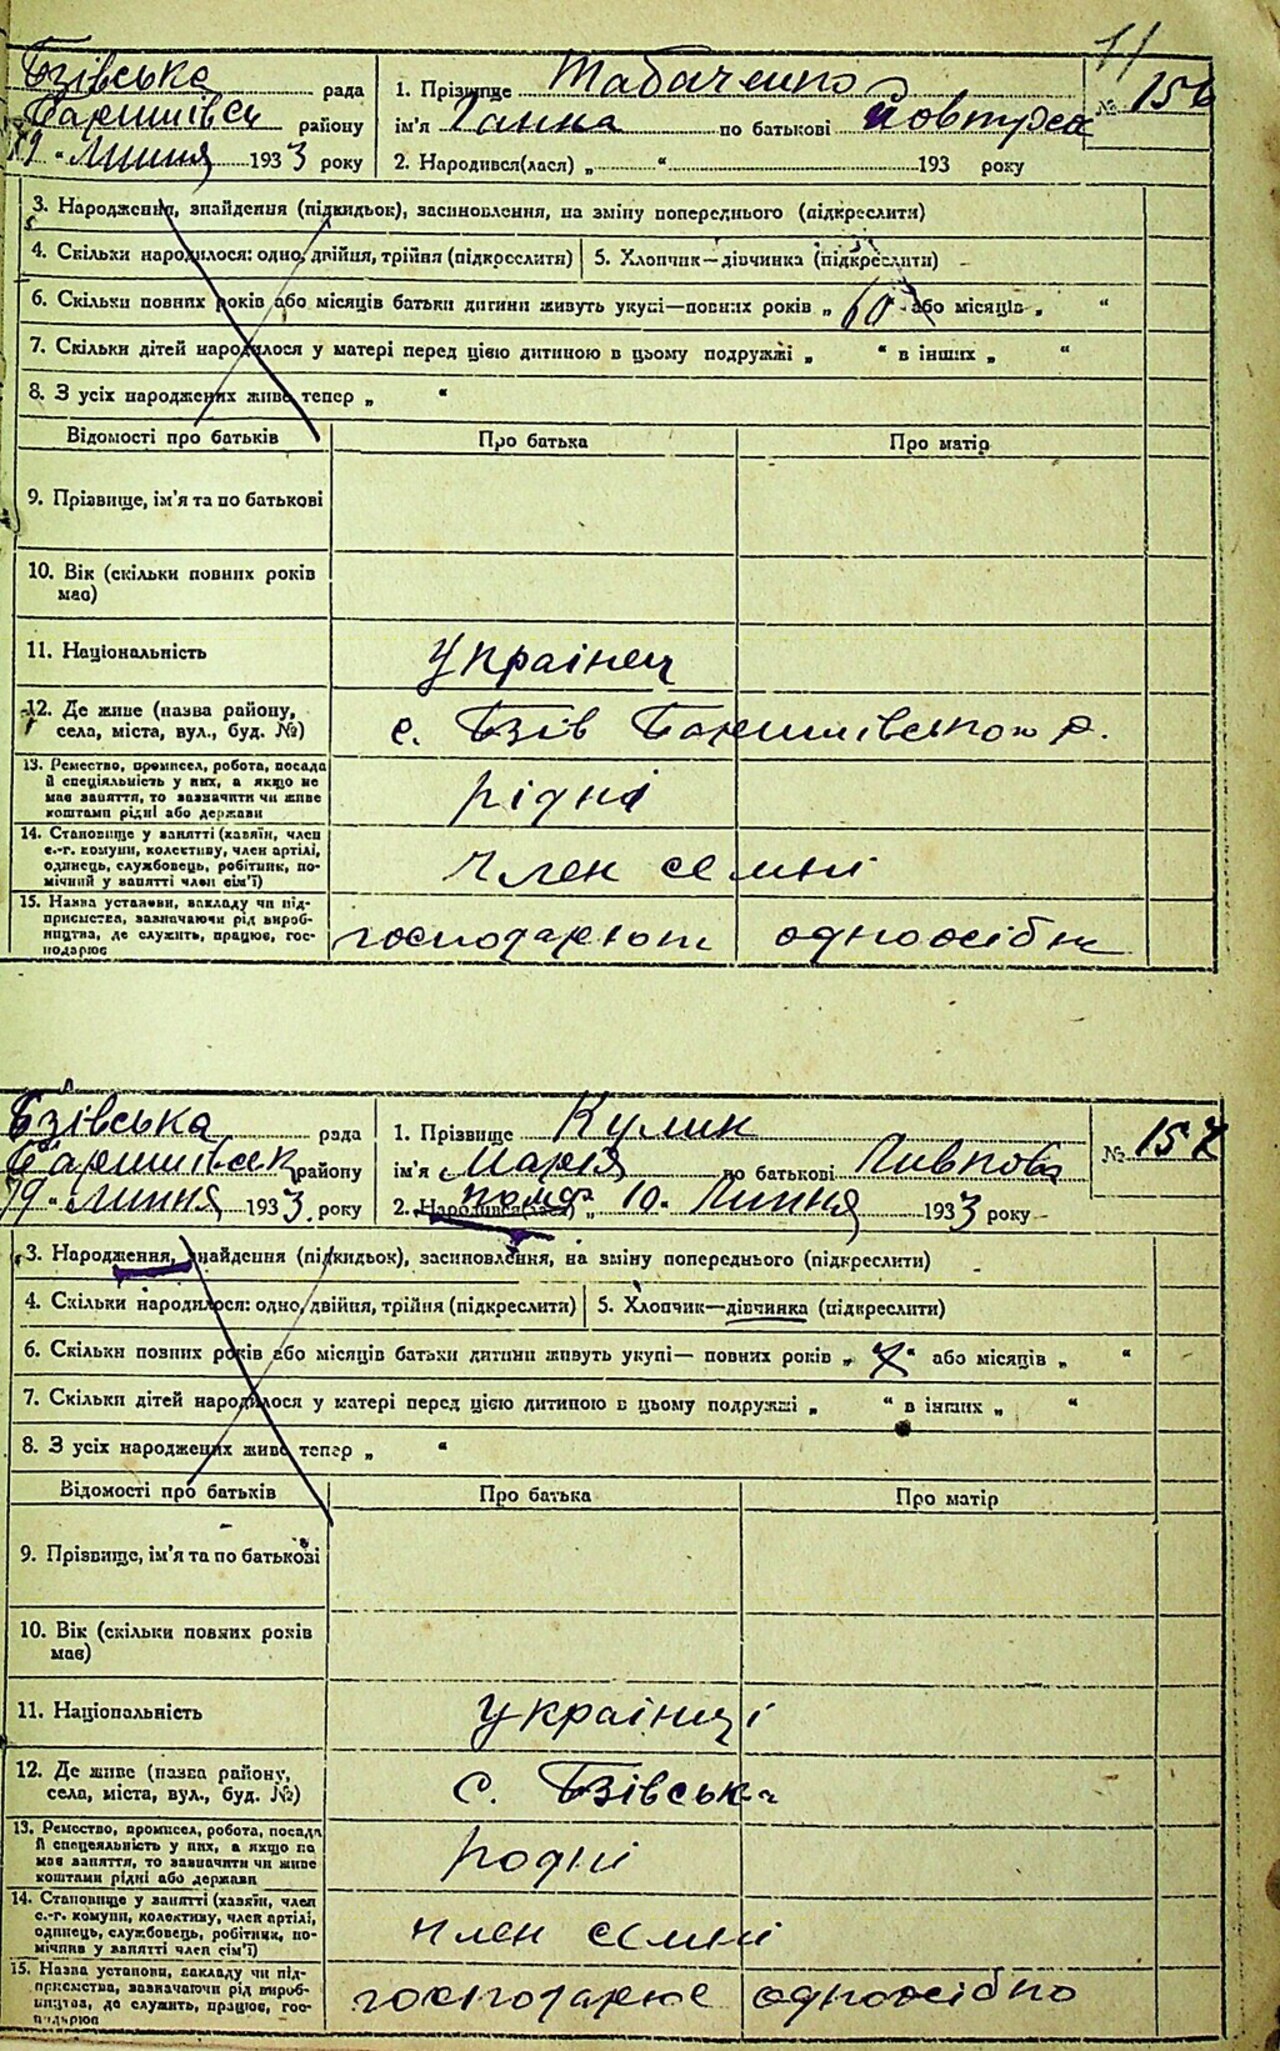 11
Бзівська рада
Баришівськ району
19 " Липня 1933 року
1. Прізвище Табаченко
ім'я Ганна по батькові Йовтухов
№ 156
2. Народився(лася) „ “ 193 року
3. Народження, знайдення (підкидьок), засиновлення, на зміну попереднього (підкреслити)
4. Скільки народилося: одно, двійня, трійня (підкреслити) 5. Хлопчик—дівчинка (підкреслити)
6. Скільки повних років або місяців батьки дитини живуть укупі—повних років „ 60 “ або місяців „ “
7. Скільки дітей народилося у матері перед цією дитиною в цьому подружжі „ “ в інших „ “
8. З усіх народжених живе тепер „ “
Відомості про батьків Про батька Про матір
9. Прізвище, ім'я та по батькові
10. Вік (скільки повних років
має)
11. Національність Українец
12. Де живе (назва району,
села, міста, вул., буд. №) с. Бзів Баришівського р.
13. Ремество, промисел, робота, посада
й спеціяльність у них, а якщо не
має заняття, то зазначити чи живе
коштами рідні або держави рідні
14. Становище у занятті (хазяїн, член
с.-г. комуни, колективу, член артілі,
одинець, службовець, робітник, по-
мічний у занятті член сім'ї) член семні
15. Назва установи, закладу чи під-
приємства, зазначаючи рід вироб-
ництва, де служить, працює, гос-
подарює господарюют одноосібно
Бзівська рада
Баришівськ району
19 " Липня 1933 року
1. Прізвище Кулик
ім'я Марія по батькові Пивнова
№ 157
2. Народився(лася) помер „ 10 “ Липня 1933 року
3. Народження, знайдення (підкидьок), засиновлення, на зміну попереднього (підкреслити)
4. Скільки народилося: одно, двійня, трійня (підкреслити) 5. Хлопчик—дівчинка (підкреслити)
6. Скільки повних років або місяців батьки дитини живуть укупі— повних років „ 7 “ або місяців „ “
7. Скільки дітей народилося у матері перед цією дитиною в цьому подружжі „ “ в інших „ “
8. З усіх народжених живе тепер „ “
Відомості про батьків Про батька Про матір
9. Прізвище, ім'я та по батькові
10. Вік (скільки повних років
має)
11. Національність українці
12. Де живе (назва району,
села, міста, вул., буд. №) с. Бзівська
13. Ремество, промисел, робота, посада
й спецеяльність у них, а якщо не
має заняття, то зазначити чи живе
коштами рідні або держави родні
14. Становище у занятті (хазяїн, член
с.-г. комуни, колективу, член артілі,
одинець, службовець, робітник, по-
мічний у занятті член сім'ї) член семні
15. Назва установи, закладу чи під-
приємства, зазначаючи рід вироб-
ництва, де служить, працює, гос-
подарює господарює одноосібно